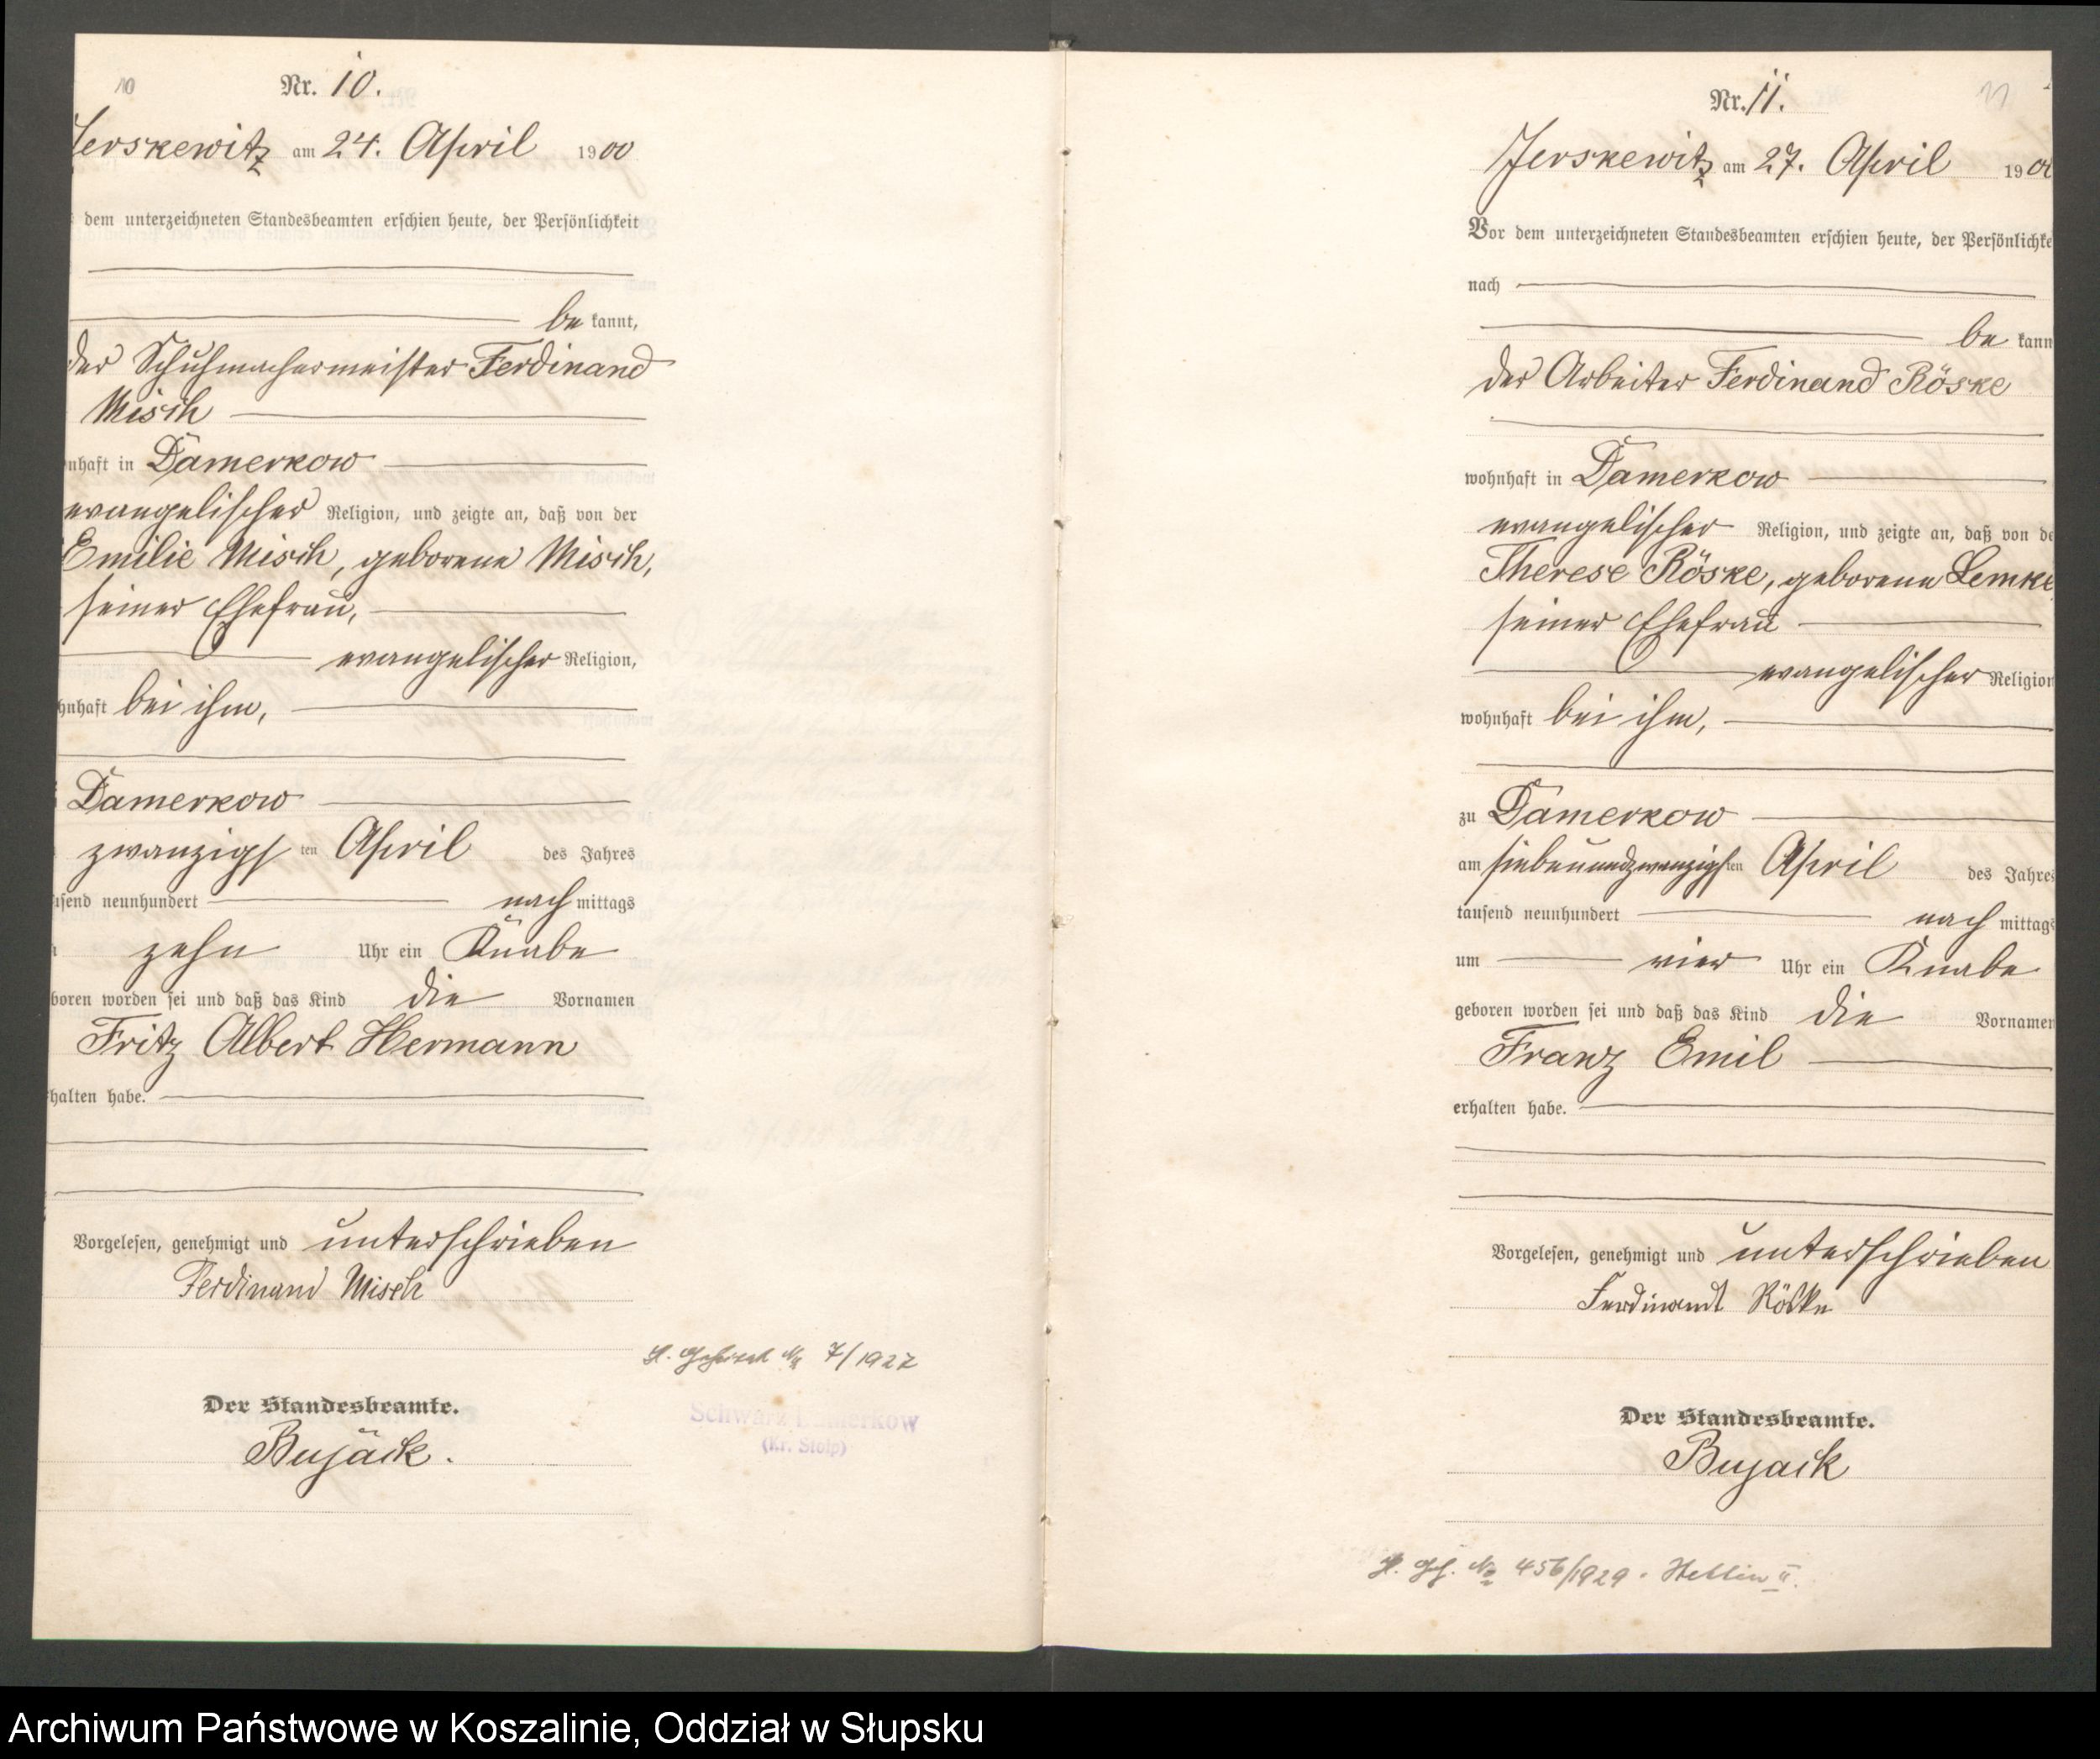 10
Nr. 10.
Jerskewitz am 24. April 1900
dem unterzeichneten Standesbeamten erschien heute, der Persönlichkeit
be kannt,
der Schuhmachermeister Ferdinand
Misch
nhaft in Damerkow
evangelischer Religion, und zeigte an, daß von der
Emilie Misch, geborene Misch,
seiner Ehefrau,
evangelischer Religion,
hnhaft bei ihm,
Damerkow
zwanzigsten April des Jahres
usend neunhundert nach mittags
zehn Uhr ein Knabe
boren worden sei und daß das Kind die Vornamen
Fritz Albert Hermann
halten habe.
Vorgelesen, genehmigt und unterschrieben
Ferdinand Misch
Der Standesbeamte.
Bujack.
№ 7/1927
Schwarz Damerkow
(Kr. Stolp)
11
Nr. 11.
Jerskewitz am 27. April 1900
Vor dem unterzeichneten Standesbeamten erschien heute, der Persönlichke
nach
be kann
der Arbeiter Ferdinand Röske
wohnhaft in Damerkow
evangelischer Religion, und zeigte an, daß von de
Therese Röske, geborene Lemke
seiner Ehefrau
evangelischer Religion
wohnhaft bei ihm,
zu Damerkow
am siebenundzwanzigsten April des Jahres
tausend neunhundert nach mittags
um vier Uhr ein Knabe
geboren worden sei und daß das Kind die Vornamen
Franz Emil
erhalten habe.
Vorgelesen, genehmigt und unterschrieben
Ferdinandt Röske
Der Standesbeamte.
Bujack
№ 456/1929. Stettin II.
Archiwum Państwowe w Koszalinie, Oddział w Słupsku